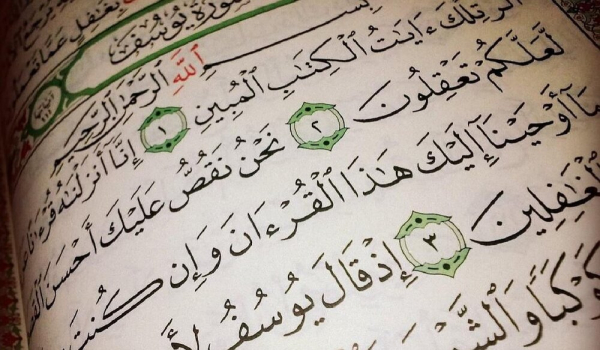 بِغَٰفِلٍ عَمَّا
سُورَةُ يُوسُفَ
بِسْمِ ٱللَّهِ ٱلرَّحْمَٰنِ ٱلرَّحِيمِ
الٓر تِلْكَ ءَايَٰتُ ٱلْكِتَٰبِ ٱلْمُبِينِ ١ إِنَّآ أَنزَلْنَٰهُ قُرْءَٰنًا
لَّعَلَّكُمْ تَعْقِلُونَ ٢ نَحْنُ نَقُصُّ عَلَيْكَ أَحْسَنَ
بِمَآ أَوْحَيْنَآ إِلَيْكَ هَٰذَا ٱلْقُرْءَانَ وَإِن كُنتَ
ٱلْغَٰفِلِينَ ٣ إِذْ قَالَ يُوسُفُ
كَوْكَبًا وَٱلشَّمْسَ